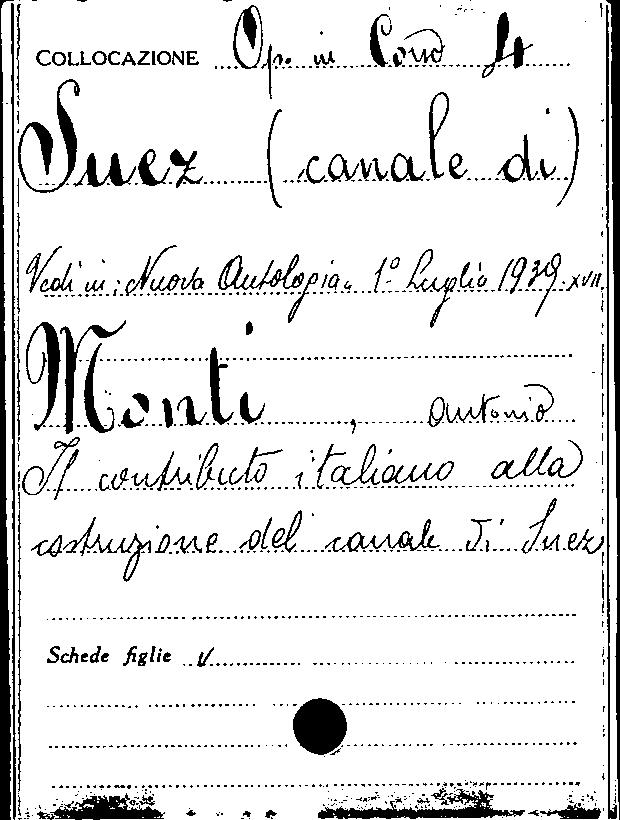 COLLOCAZIONE Op. in Cons 4
Suez (canale di)
Vedi in: Nuova Antologia, 1º Luglio 1939. XVII
Monti, Antonio
Il contributo italiano alla
costruzione del canale di Suez
Schede figlie V